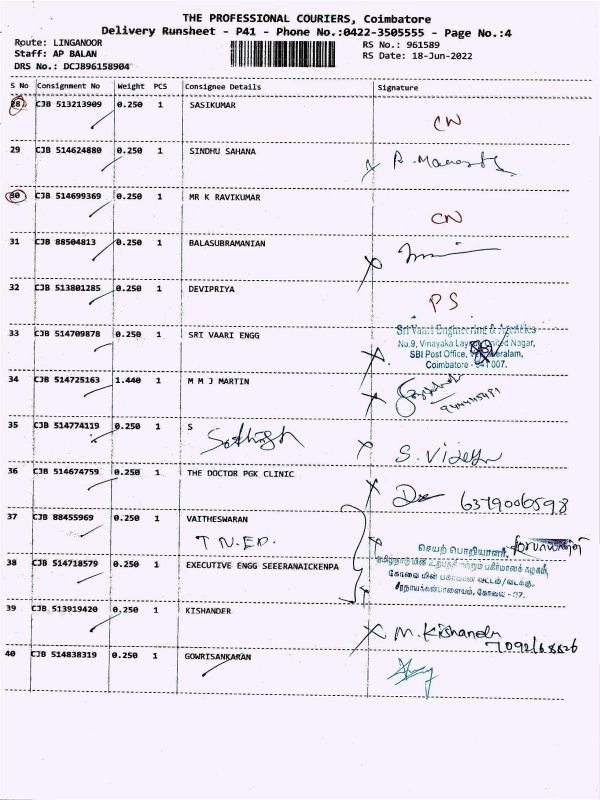 THE PROFESSIONAL COURIERS, Coimbatore
Delivery Runsheet - P41 - Phone No.:0422-3505555 - Page No.:4
Route: LINGANOOR RS No.: 961589
Staff: AP BALAN RS Date: 18-Jun-2022
DRS No.: DCJB96158904
S No Consignment No Weight PCS Consignee Details Signature
28 CJB 513213909 0.250 1 SASIKUMAR CN
29 CJB 514624880 0.250 1 SINDHU SAHANA
30 CJB 514699369 0.250 1 MR K RAVIKUMAR CN
31 CJB 88504813 0.250 1 BALASUBRAMANIAN
32 CJB 513801285 0.250 1 DEVIPRIYA PS
33 CJB 514709878 0.250 1 SRI VAARI ENGG
Sri Vaari Engineering & Agencies
No.9, Vinayaka Nagar,
SBI Post Office,
Coimbatore - 641 007.
34 CJB 514725163 1.440 1 M M J MARTIN
35 CJB 514774119 0.250 1 S
Sathish
36 CJB 514674759 0.250 1 THE DOCTOR PGK CLINIC
6379006598
37 CJB 88455969 0.250 1 VAITHESWARAN
T N.E.D.
செயற் பொறியாளர்,
38 CJB 514718579 0.250 1 EXECUTIVE ENGG SEEERANAICKENPA
39 CJB 513919420 0.250 1 KISHANDER
M. Kishander
40 CJB 514838319 0.250 1 GOWRISANKARAN